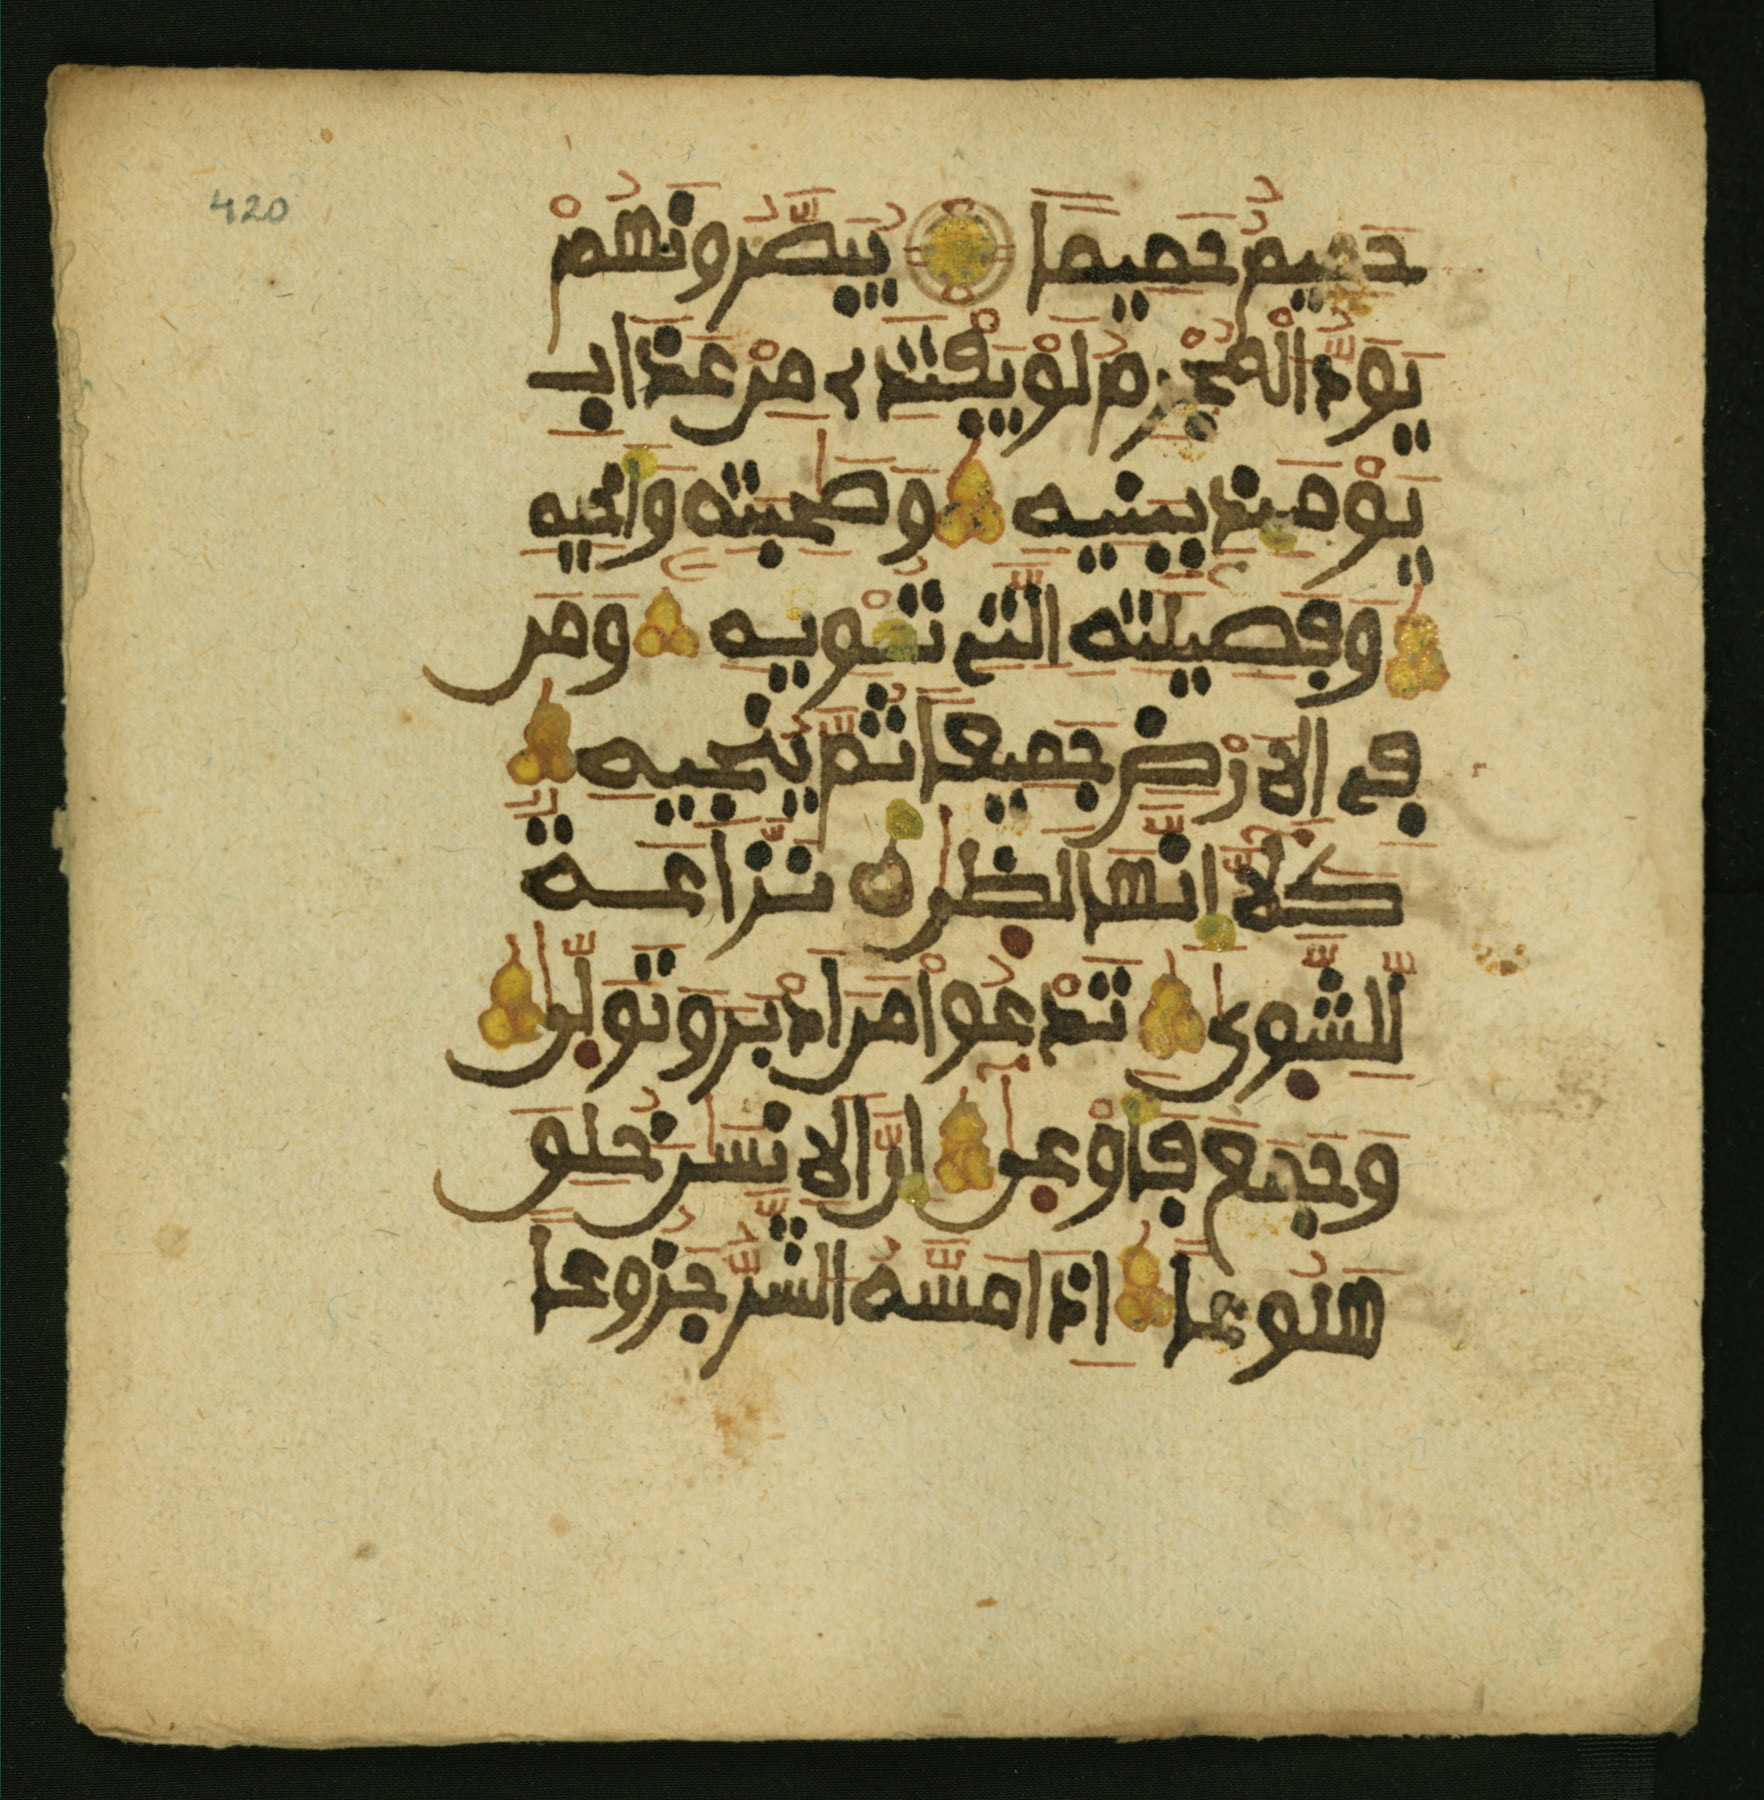 420
حَمِيمٌ حَمِيمًا يُبَصَّرُونَهُمْ
يَوَدُّ الْمُجْرِمُ لَوْ يَفْتَدِے مِنْ عَذَابِ
يَوْمَئِذٍ بِبَنِيهِ وَصَٰحِبَتِهِ وَأَخِيهِ
وَفَصِيلَتِهِ الَّتِے تُـْٔوِيهِ وَمَن
فِے الَارْضِ جَمِيعًا ثُمَّ يُنجِيهِ
كَلَّا إِنَّهَا لَظَىٰ نَزَّاعَةٌ
لِّلشَّوَىٰ تَدْعُواْ مَنَ ادْبَرَ وَتَوَلَّىٰ
وَجَمَعَ فَأَوْعَىٰٓ إِنَّ الِانسَٰنَ خُلِقَ
هَلُوعًا إِذَا مَسَّهُ الشَّرُّ جَزُوعًا